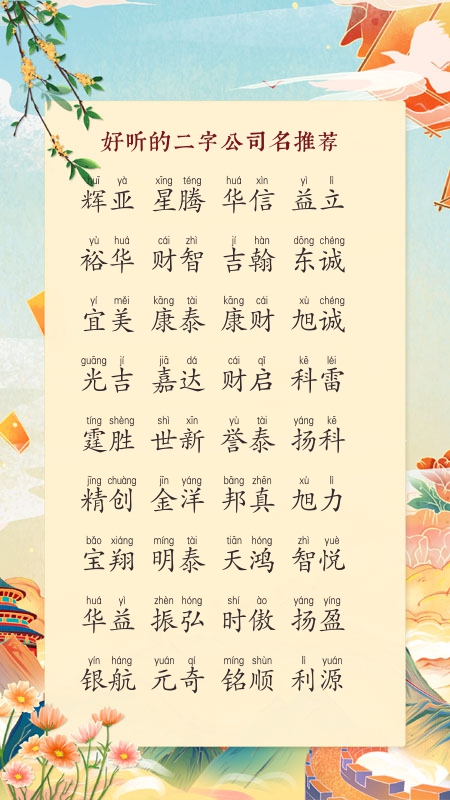 好听的二字公司名推荐
huī yà xīng téng huá xìn yì lì
辉亚 星腾 华信 益立
yù huá cái zhì jí hàn dōng chéng
裕华 财智 吉翰 东诚
yí měi kāng tài kāng cái xù chéng
宜美 康泰 康财 旭诚
guāng jí jiā dá cái qǐ kē léi
光吉 嘉达 财启 科雷
tíng shèng shì xīn yù tài yáng kē
霆胜 世新 誉泰 扬科
jīng chuàng jīn yáng bāng zhēn xù lì
精创 金洋 邦真 旭力
bǎo xiáng míng tài tiān hóng zhì yuè
宝翔 明泰 天鸿 智悦
huá yì zhèn hóng shí ào yáng yíng
华益 振弘 时傲 扬盈
yín háng yuán qí míng shùn lì yuán
银航 元奇 铭顺 利源